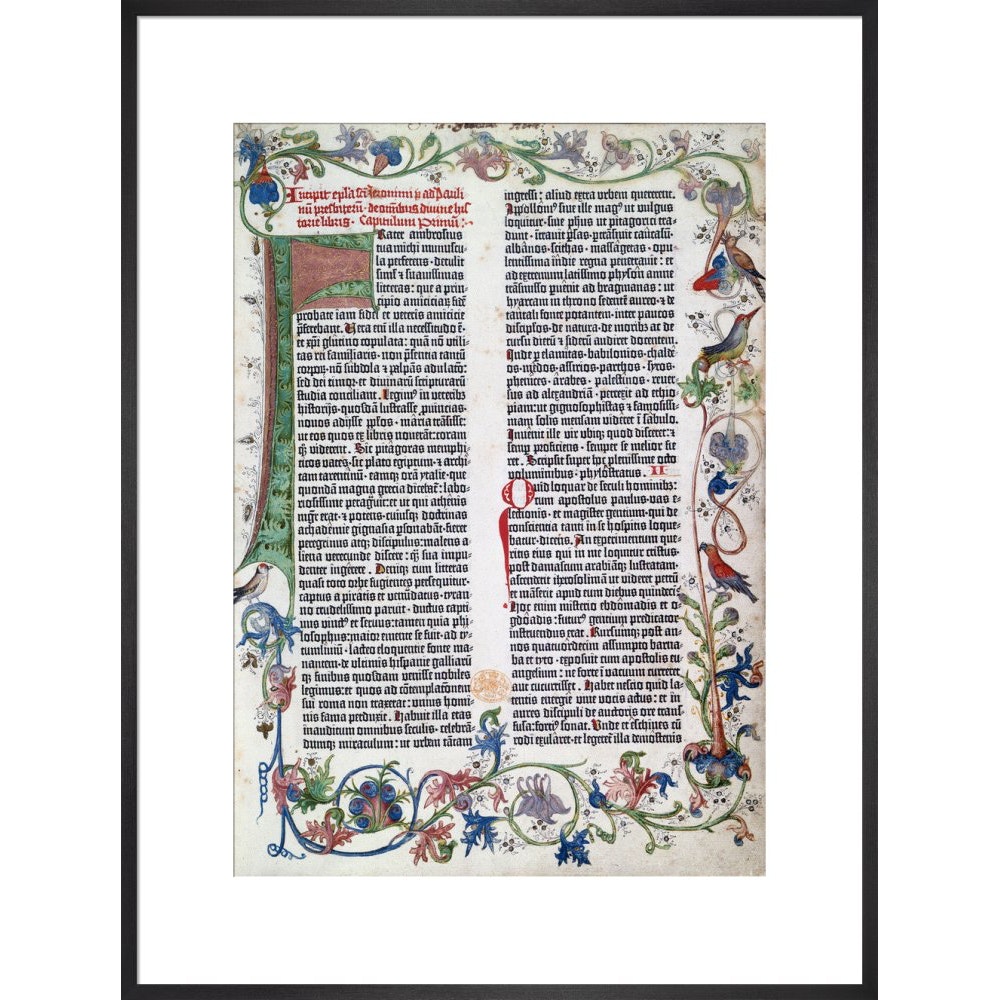 Incipit epistola sancti iheronimi p̄ ad Pauli
nū presbiterū · de omnibus divine his
torie libris · Capitulum Primū:·
Frater ambrosius
tua michi munuscu
la preferens · detulit
simul ⁊ suauissimas
litteras: que a prin-
cipio amiciciar̨ fidē
probate iam fidei et veteris amicicie
p̄ferebant. Vera eni illa necessitudo ē·
et xp̄i glutino copulata: quā nō utili-
tas rei familiaris · nō p̄sentia tantū
corporum · nō subdola ⁊ palpās adulacō:
sed dei timor · et diuinarū scripturarū
studia conciliant. Legimꝰ in veteribꝰ
historijs · quosdā lustrasse ꝓuincias ·
nouos adijsse pp̄los · maria trāsisse:
ut eos quos ex libris nouerāt: coram
qꝫ viderent. Sic pitagoras memphi
ticos vates · sic plato egiptum · ⁊ archi
tam tarentinū · eamqꝫ orā ytalie · que
quondā magna grecia dicebat̄: labo-
riosissime peragrauit: et ut qui athenis
mgr̄ erat · ⁊ potens · cuiusqꝫ doctrinas
achademie gignasia ꝑsonabāt · fieret
peregrinus atqꝫ discipulus: malens a
liena verecunde discere: qꝫ sua impu-
denter ingerere. Deniqꝫ cum litteras
quasi toto orbe fugientes persequitur ·
captus a piratis et venundatus · tyran
no crudelissimo paruit · ductus capti
uus vinctꝰ et seruus: tamen quia phi
losophus: maior emente se fuit · ad ty-
tumliuiū · lacteo eloquentie fonte ma
nantem · de ultimis hispanie galliarū
qꝫ finibus quosdam venisse nobiles
legimus: et quos ad cōtemplacōnem
sui roma non traxerat: vnius homi-
nis fama perduxit. Habuit illa etas
inauditum omnibus seculis · celebrā
dumqꝫ miraculum: ut urbem tantam
ingressi: aliud extra urbem quererent.
Appollonius siue ille magꝰ ut vulgus
loquitur · siue ph̄us ut pitagorici tra-
dunt · ītrauit ꝑsas · ꝑtrāsiuit caucasū ·
albanos · scithas · massagetas · opu-
lentissima indie regna penetrauit: et
ad extremum latissimo physon amne
trāsmisso ꝑuenit ad bragmanas: ut
hyarcam in throno sedentē aureo · ⁊ de
tantali fonte potantem · inter paucos
discipulos · de natura · de moribus ac de
cursu dierū ⁊ siderū audiret docentem.
Inde ꝑ elamitas · babilonios · chalde
os · medos · assirios · parthos · syros ·
phenices · arabes · palestinos · reuer-
sus ad alexandriā · perrexit ad ethio-
piam: ut gignosophistas ⁊ famosissi-
mam solis mensam videret ī sabulo.
Inuenit ille vir ubiqꝫ quod disceret: ⁊
semꝑ proficiens · semper se melior fie
ret. Scripsit super hoc plenissime octo
voluminibus · phylostratus. II
Quid loquar de seculi hominibꝰ:
cum apostolus paulus · vas e
lectionis · et magister gentium · qui de
consciencia tanti in se hospitis loque
batur · dicens. An experimentum que
ritis eius qui in me loquitur cristus ·
post damascum arabiāqꝫ lustratam ·
ascenderit iherosolimā ut videret petrū
et māserit apud eum diebus quindecī
Hoc enim misterio ebdomadis et o
gdoadis: futurꝰ gentium predicator
instruendus erat. Rursumqꝫ post an
nos quatuordecim assumpto barna
ba et tyto · exposuit cum apostolis eu
angelium: ne forte ī vacuum curreret
aut cucurrisset. Habet nescio quid la-
tentis energie viue vocis actus: et in
aures discipuli de auctoris ore trans
fusa: forciꝰ sonat. Unde et eschines cū
rodi exularet · et legeret̄ illa demostenis